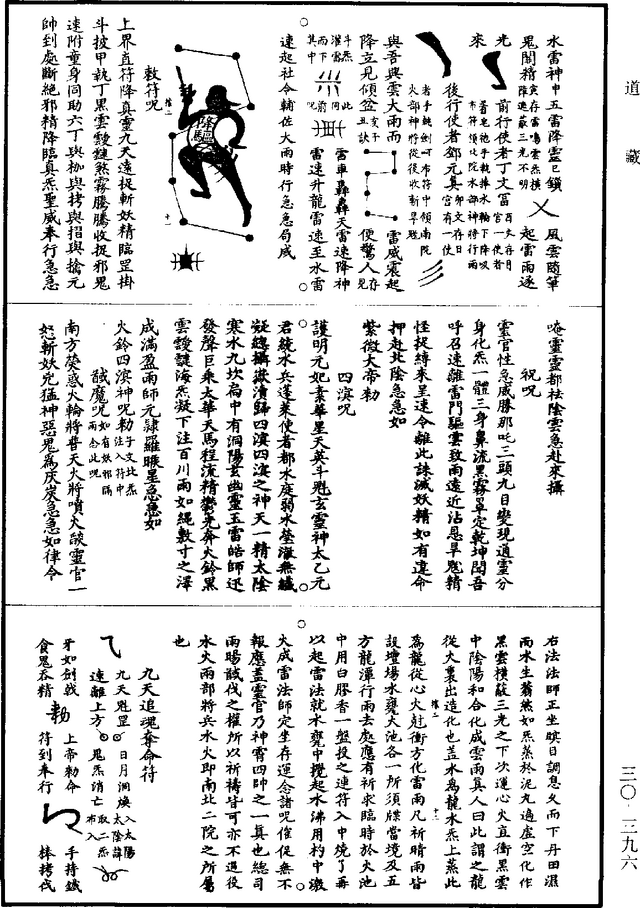 道藏
水雷神中五雷降靈已鎖
鬼關精
風雲隨筆
起雷雨逐
光
前行使者丁文𠖇
來
後行使者鄧元真
與吾興雲大雨而
雷威震起
降立見傾盆
便驚人
雷車轟轟天雷速降神
雷速升龍雷速至水雷
速起社令輔佐大雨時行急急局威
敕符咒
上界直符降真靈九天速捉斬妖精臨罡掛
斗披甲執丁黑雲靉靆煞霧騰騰收捉邪鬼
速附童身同助六丁與枷與拷與招與擒元
帥到處斷絕邪精降臨真炁聖威奉行急急
唵靈靈都祛陰雲急赴來攝
祝咒
靈官性急威勝那吒三頭九目變現通靈分
身化炁一體三身鼻流黑霧罩定乾坤聞吾
呼召速離雷門驅雲致雨遠近沾恩旱鬼精
怪捉縛來呈速令離此誅滅妖精如有違命
押赴北陰急急如
紫微大帝勑
四溟咒
護明元妃素華星天英斗魁玄靈神太乙元
君統水兵蓬萊使者都水庭弱水瑩漵無纖
凝總攝嶽瀆歸四溟四溟之神天一精太陰
寒水九坎扃中有洞陽玄幽靈玉雷皓師迅
發聲巨乘太華天馬程流精鬱光奔火鈴黑
雲靉靆海炁凝下注百川雨如繩數寸之澤
成滿盈雨師元隸羅睺星急急如
火鈴四溟神咒勑
馘魔咒
南方熒惑火輪將普天火將噴火燄靈官一
怒斬妖兇猛神惡鬼為灰炭急急如律令
右法法師正坐瞑目調息久而下丹田濕
而水生蓊然如炁蒸於泥丸遍虛空化作
黑雲橫蔽三光之下次運心火直衝黑雲
中陰陽和合化成雲雨真人曰此謂之龍
從火裏出造化也蓋水為龍水炁上蒸此
為龍從心火尅衝方化雷雨凡祈晴雨皆
設壇場水甕大池各一所須牒當境及五
方龍潭行雨去處應有祈求臨時於火池
中用白膠香一盤投之連符入中燒了再
以起雷法就水甕中攪起水沸用杓中潑
火成雷法師定坐存運念諸咒催促無不
報應蓋靈官乃神霄四帥之一真也總司
雨暘誠伐之權所以祈禱皆可亦不過役
水火兩部將兵水火即南北二院之所屬
也
九天追魂奪命符
九天魁罡
日月洞煥
遠離上方
鬼炁消亡
牙如劍戟
上帝勑命
手持鐵
食鬼吞精
得到奉行
棒拷伐
三〇·三九六